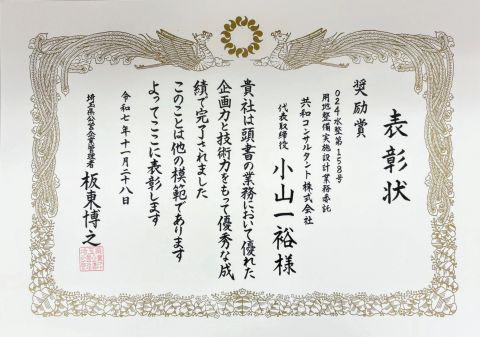 表彰状
奨励賞
024水整第158号
用地整備実施設計業務委託
共和コンサルタント株式会社
代表取締役 小山一裕様
貴社は頭書の業務において優れた
企画力と技術力をもって優秀な成
績で完了されました
このことは他の模範であります
よってここに表彰します
令和七年十一月二十八日
埼玉県公営企業管理者 板東博之